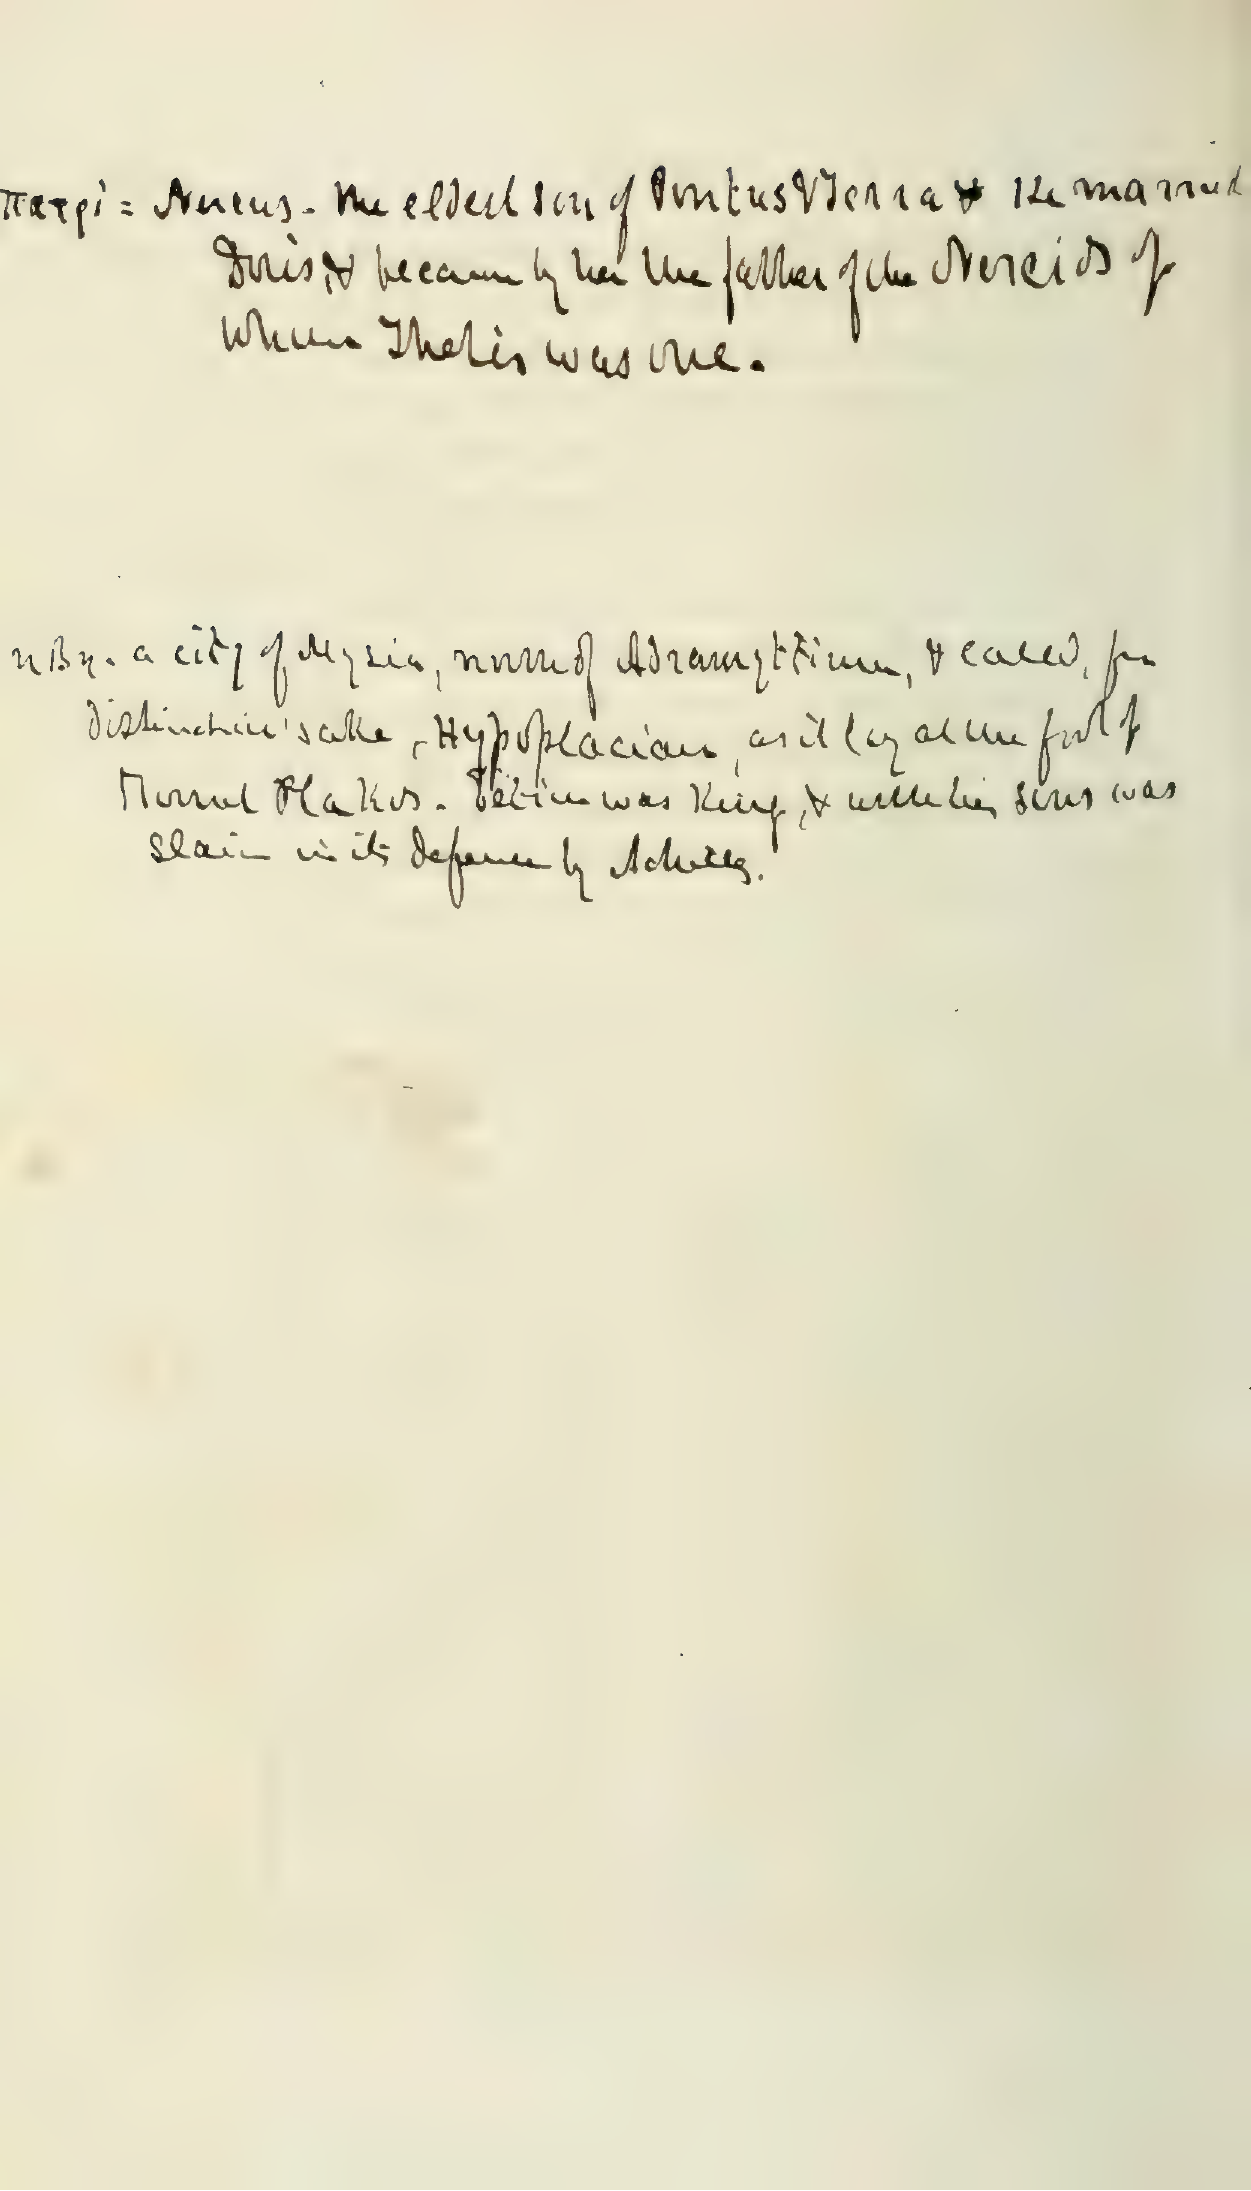 πατρὶ = Nereus. The eldest son of Pontus & Terra & He married
Doris, & became by her the father of the Nereids of
whom Thetis was one.
ηβη. a city of Mysia, north of Adramyttium, & called, for
distinction's sake, Hypoplacian, as it lay at the foot of
Mount Plakos. Eëtion was King, & with his sons was
slain in its defence by Achilles.